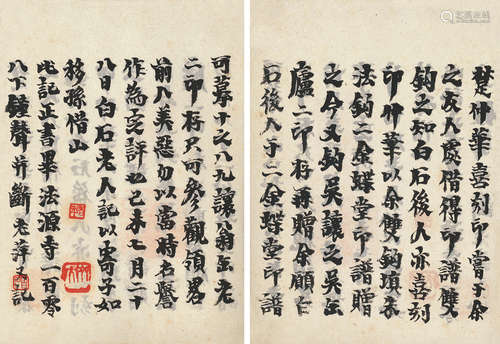 楚仲華喜刻印嘗于余
之友人處借得印譜雙
鉤之知白石後人亦喜刻
印仲華以余雙鉤
法鉤二金蝶堂印譜贈
之今又鉤吳讓之吳缶
廬二印存再贈余願白
石後人于二金蝶堂印譜
可摹十之八九讓翁缶老
二印存只可參觀領畧
前人美惡勿以當時名譽
作為定評也己未七月二十
八日白石老人記以寄子如
移孫借山
此記正書畢法源寺一百零
八下鐘聲并斷 老萍又記